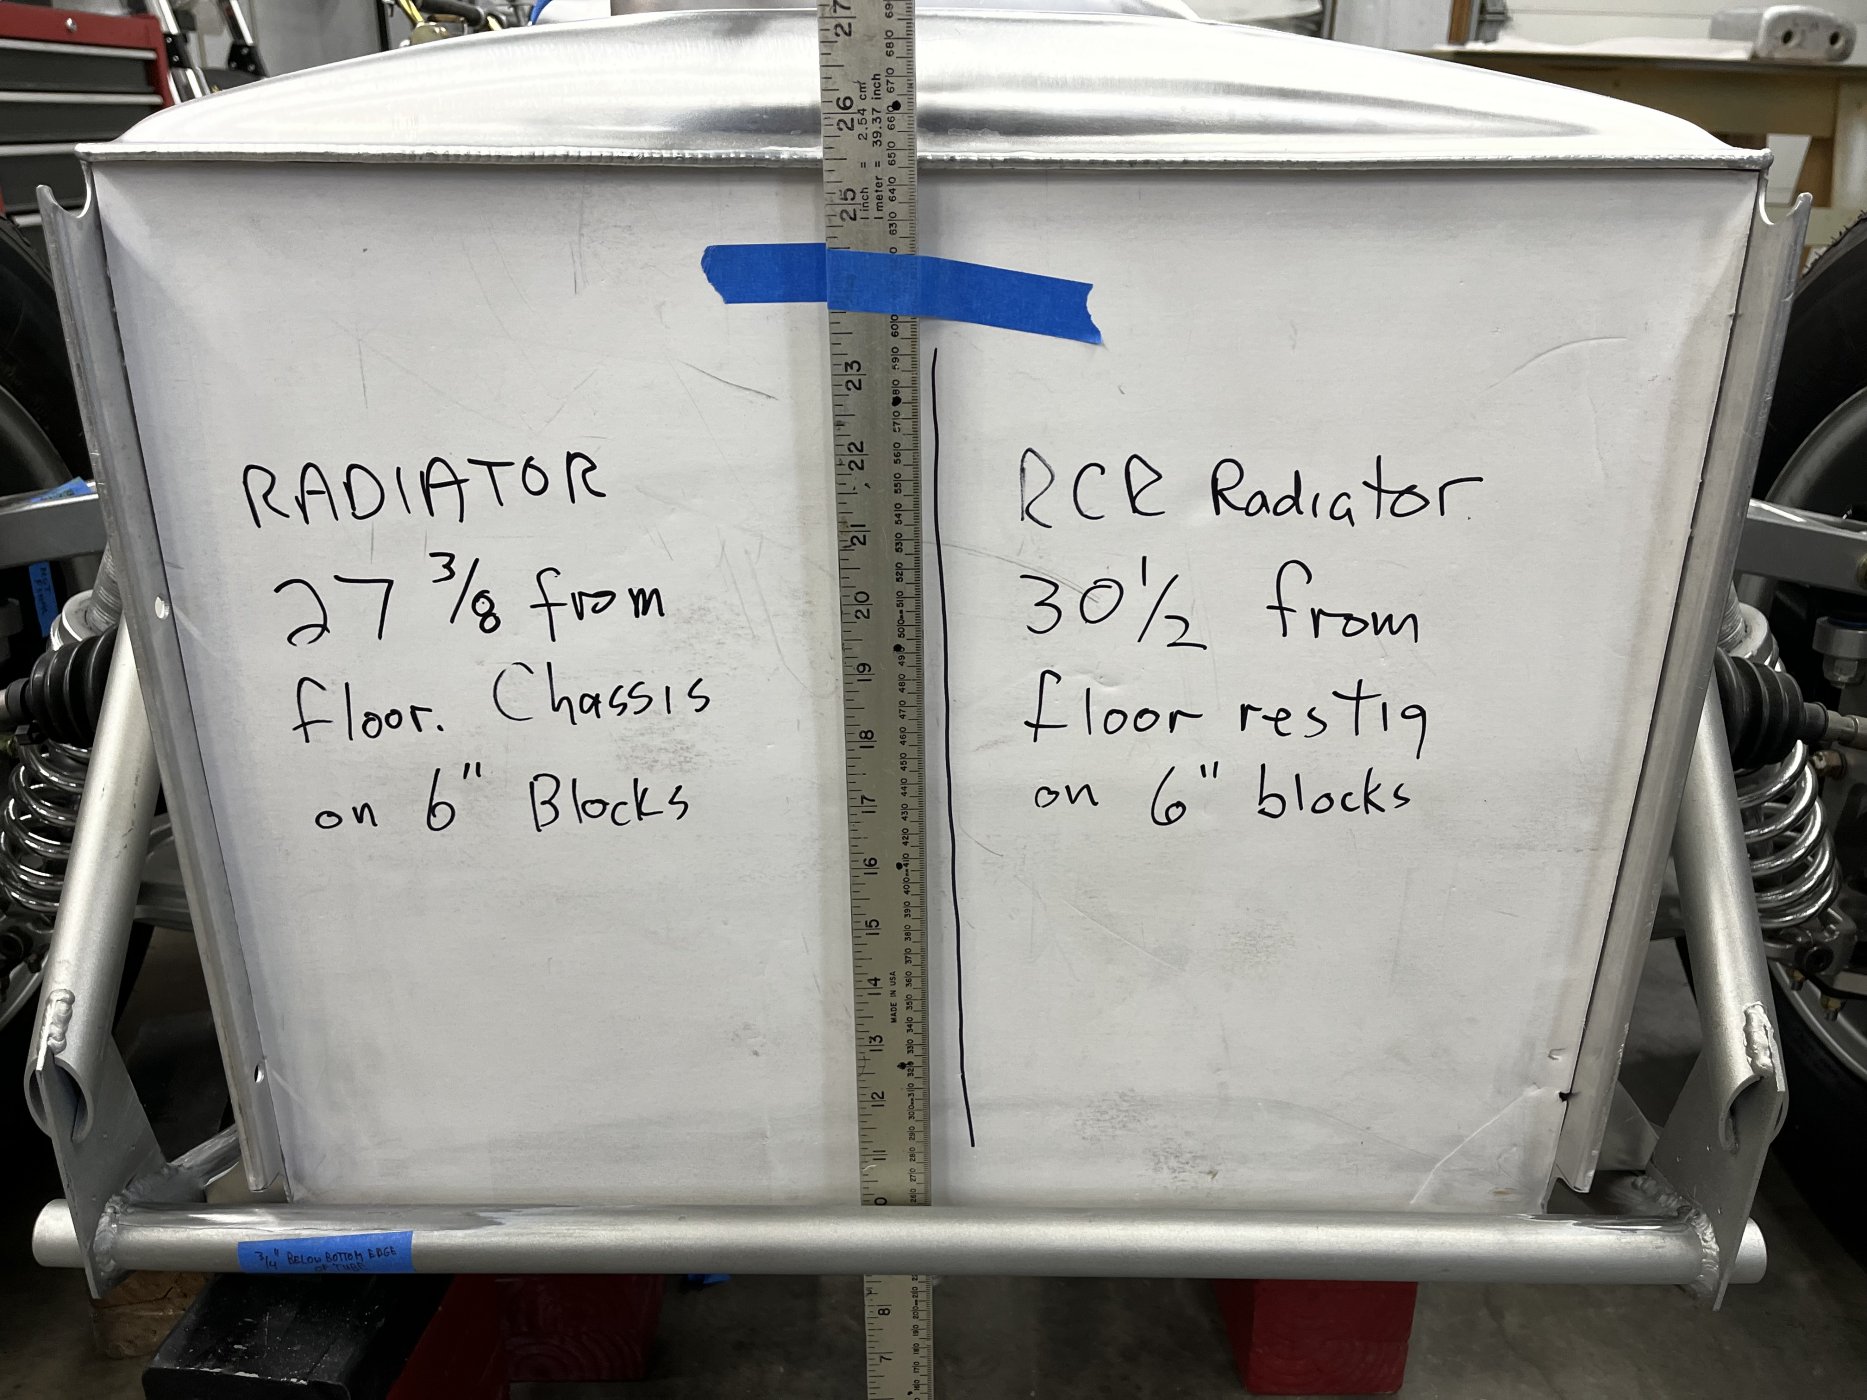 RADIATOR
27 3/8 from
floor. Chassis
on 6" Blocks
RCR Radiator
30 1/2 from
floor restig
on 6" blocks
3/4" BELOW BOTTOM EDGE
OF TUBE
1 inch = 2.54 cm
1 meter = 39.37 inch
MADE IN USA
27
26
25
23
22
21
20
19
18
17
16
15
14
13
12
11
8
7